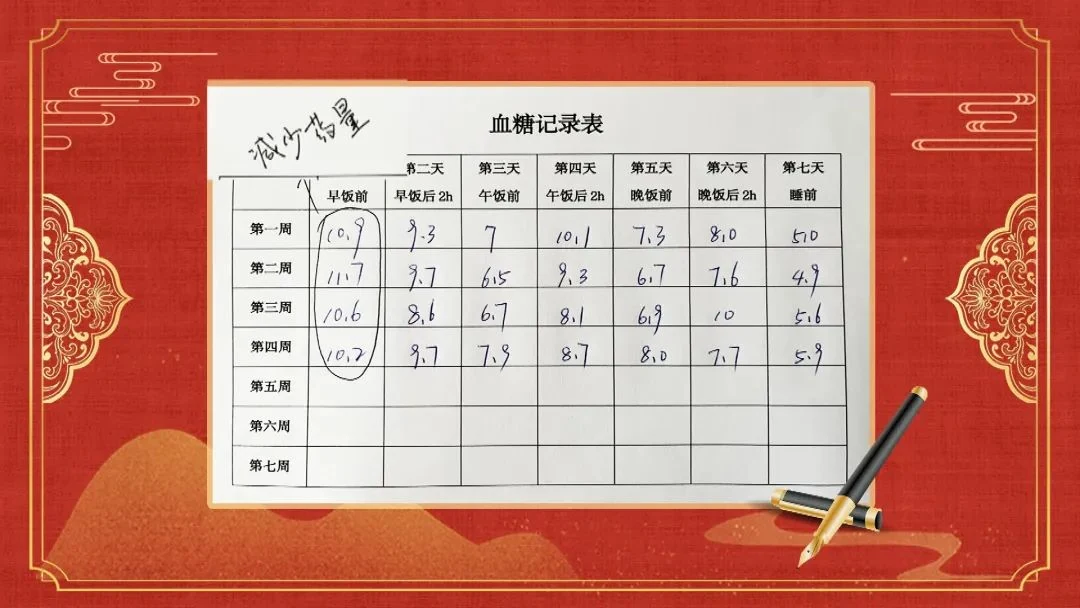 减少药量
血糖记录表
第二天 第三天 第四天 第五天 第六天 第七天
早饭前 早饭后2h 午饭前 午饭后2h 晚饭前 晚饭后2h 睡前
第一周 10.9 9.3 7 10.1 7.3 8.0 5.0
第二周 11.7 9.7 6.5 9.3 6.7 7.6 4.9
第三周 10.6 8.6 6.7 8.1 6.9 10 5.6
第四周 10.2 9.7 7.9 8.7 8.0 7.7 5.9
第五周
第六周
第七周